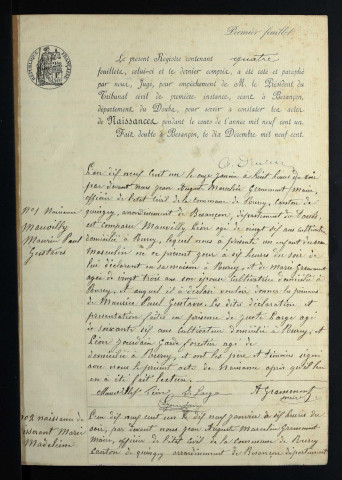 Premier feuillet
Le présent Registre contenant quatre
feuillets, celui-ci et le dernier compris, a été coté et paraphé
par nous, Juge, pour empêchement de M. le Président du
Tribunal civil de première instance, séant à Besançon,
département du Doubs, pour servir à constater les actes
de Naissances pendant le cours de l'année mil neuf cent un.
Fait double à Besançon, le dix Décembre mil neuf cent.
RÉPUBLIQUE FRANÇAISE
L'an dix neuf cent un le onze Janvier à huit heures du soir
par devant nous Jean Auguste Marcelin Grammont, Maire,
officier de l'état civil de la commune de Bourg, Canton
de quingey, arrondissement de Besançon, département du Doubs,
N° 1 Naissance
Mauvilly
Maurice Paul
Gustave
est comparu Mauvilly Léon âgé de vingt six ans cultivateur
domicilié à, lequel nous a présenté un enfant du sexe
masculin né ce présent jour à six heures du soir de
lui déclarant en sa maison à, et de Marie Grammont
âgée de vingt trois ans son épouse cultivatrice domiciliée à
, et auquel il a déclaré vouloir donner les prénoms
de Maurice Paul Gustave. Les dites déclaration et
présentation faites en présence de Juste Large âgé
de soixante six ans cultivateur domicilié à, et
Léon Garde forestier âgé de
domicilié à, et ont les père et témoins signé
avec nous le présent acte de naissance après qu'il leur
en a été fait lecture.
Mauvilly Léon J. Large A Grammont
maire
N° 2 naissance de
Grammont Marie
Madeleine
L'an dix neuf cent un le dix neuf janvier à dix heures du
soir, par devant nous Jean Auguste Marcelin Grammont
maire, officier de l'état civil de la commune de
Canton de quingey arrondissement de Besançon département